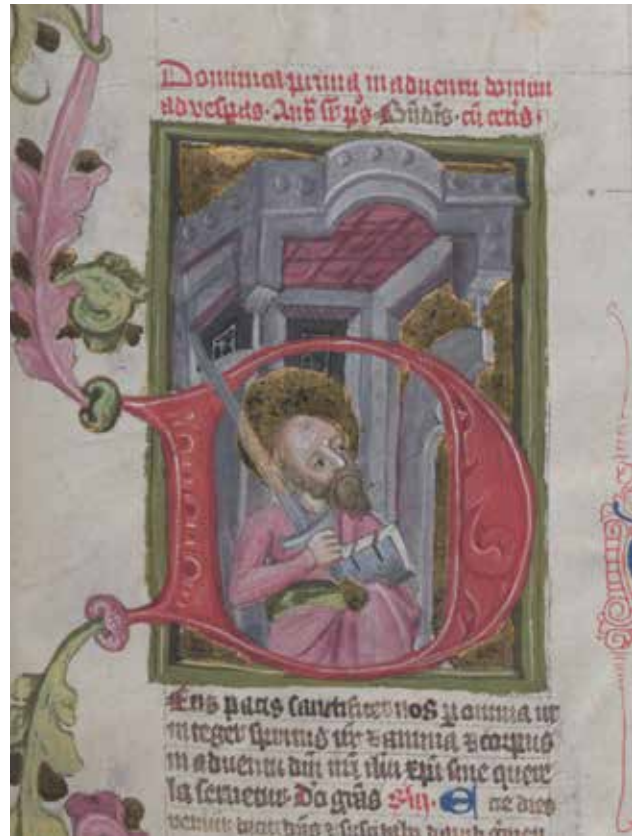 Dominica prima in aduentu domini
ad vespas · Anā sup ps · Bn̄dis · cū cetis ·
D
Eus pacis sanctificet nos p omnia ut
integer spiritus vr & anima & corpus
in aduentu dn̄i nr̄i ihū xpī sine quere
la seruetur Do grās An̄ · E cce dies